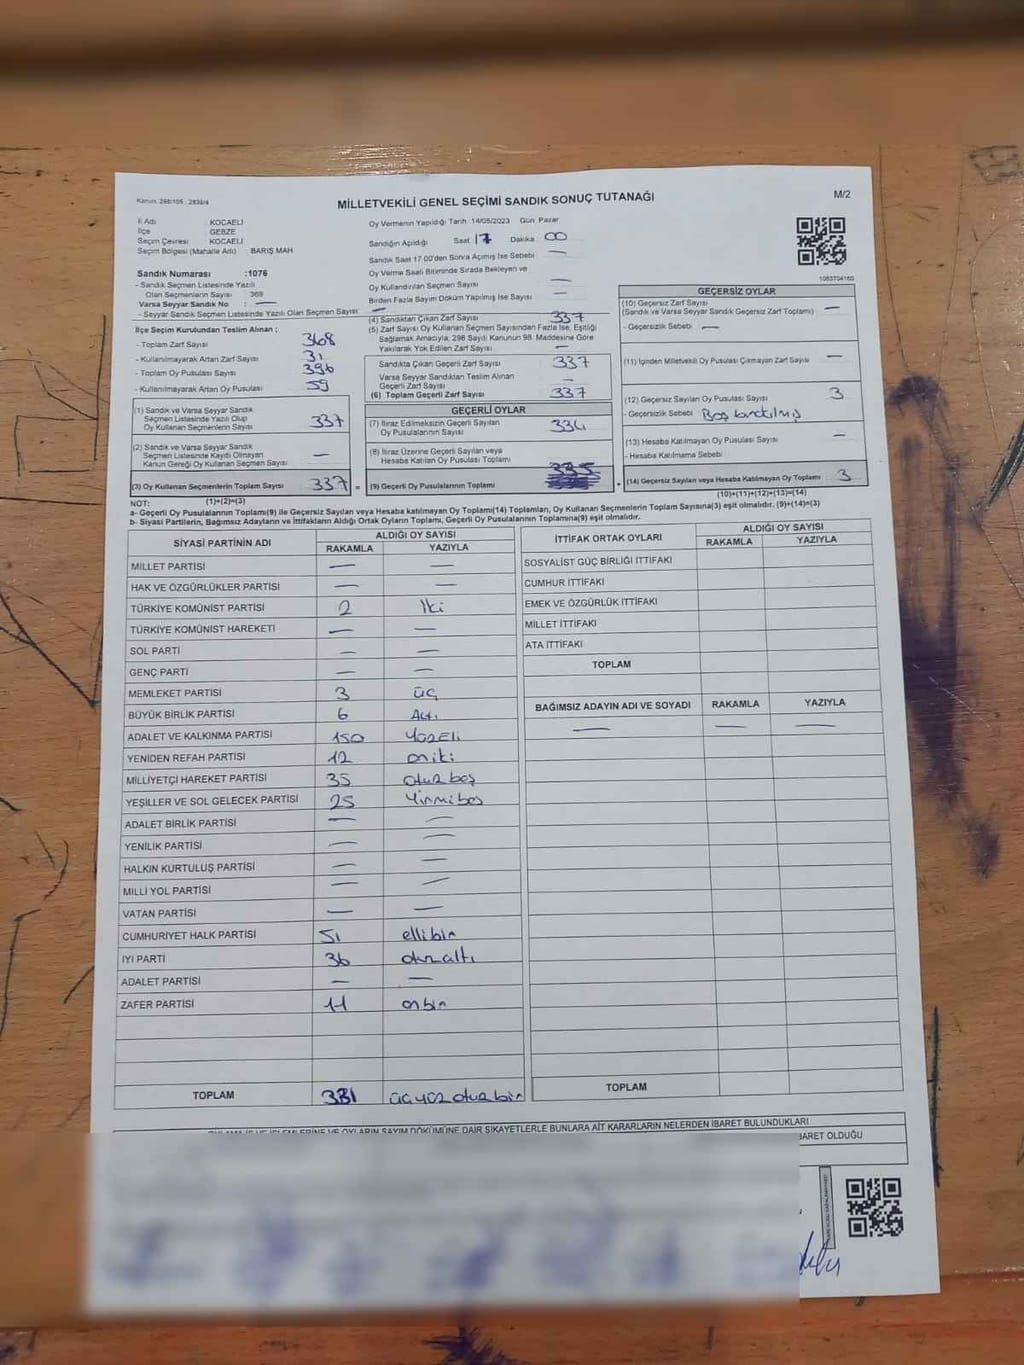 Kanun: 298/105 , 2839/4
MİLLETVEKİLİ GENEL SEÇİMİ SANDIK SONUÇ TUTANAĞI
M/2
İl Adı KOCAELİ
İlçe GEBZE
Seçim Çevresi KOCAELİ
Seçim Bölgesi (Mahalle Adı) BARIŞ MAH
Sandık Numarası :1076
- Sandık Seçmen Listesinde Yazılı
Olan Seçmenlerin Sayısı 369
Varsa Seyyar Sandık No : —
- Seyyar Sandık Seçmen Listesinde Yazılı Olan Seçmen Sayısı —
Oy Vermenin Yapıldığı Tarih :14/05/2023 Gün: Pazar
Sandığın Açıldığı Saat 17 Dakika 00
Sandık Saat 17.00'den Sonra Açımış İse Sebebi —
Oy Verme Saati Bitiminde Sırada Bekleyen ve
Oy Kullandırılan Seçmen Sayısı —
Birden Fazla Sayım Döküm Yapılmış İse Sayısı —
İlçe Seçim Kurulundan Teslim Alınan ;
- Toplam Zarf Sayısı 368
- Kullanılmayarak Artan Zarf Sayısı 31
- Toplam Oy Pusulası Sayısı 396
- Kullanılmayarak Artan Oy Pusulası 59
(1) Sandık ve Varsa Seyyar Sandık
Seçmen Listesinde Yazılı Olup
Oy Kullanan Seçmenlerin Sayısı 337
(2) Sandık ve Varsa Seyyar Sandık
Seçmen Listesinde Kaydı Olmayan
Kanun Gereği Oy Kullanan Seçmen Sayısı —
(3) Oy Kullanan Seçmenlerin Toplam Sayısı 337 =
(1)+(2)=(3)
(4) Sandıktan Çıkan Zarf Sayısı 337
(5) Zarf Sayısı Oy Kullanan Seçmen Sayısından Fazla İse, Eşitliği
Sağlamak Amacıyla; 298 Sayılı Kanunun 98. Maddesine Göre
Yakılarak Yok Edilen Zarf Sayısı —
Sandıkta Çıkan Geçerli Zarf Sayısı 337
Varsa Seyyar Sandıktan Teslim Alınan
Geçerli Zarf Sayısı —
(6) Toplam Geçerli Zarf Sayısı 337
GEÇERLİ OYLAR
(7) İtiraz Edilmeksizin Geçerli Sayılan
Oy Pusulalarının Sayısı 334
(8) İtiraz Üzerine Geçerli Sayılan veya
Hesaba Katılan Oy Pusulası Toplamı
(9) Geçerli Oy Pusulalarının Toplamı +
1083734160
GEÇERSİZ OYLAR
(10) Geçersiz Zarf Sayısı
(Sandık ve Varsa Seyyar Sandık Geçersiz Zarf Toplamı) —
- Geçersizlik Sebebi —
(11) İçinden Milletvekili Oy Pusulası Çıkmayan Zarf Sayısı —
(12) Geçersiz Sayılan Oy Pusulası Sayısı 3
- Geçersizlik Sebebi
(13) Hesaba Katılmayan Oy Pusulası Sayısı —
- Hesaba Katılmama Sebebi
(14) Geçersiz Sayılan veya Hesaba Katılmayan Oy Toplamı 3
(10)+(11)+(12)+(13)=(14)
NOT:
a- Geçerli Oy Pusulalarının Toplamı(9) ile Geçersiz Sayılan veya Hesaba katılmayan Oy Toplamı(14) Toplamları, Oy Kullanan Seçmenlerin Toplam Sayısına(3) eşit olmalıdır. (9)+(14)=(3)
b- Siyasi Partilerin, Bağımsız Adayların ve İttifakların Aldığı Ortak Oyların Toplamı, Geçerli Oy Pusulalarının Toplamına(9) eşit olmalıdır.
SİYASİ PARTİNİN ADI ALDIĞI OY SAYISI
RAKAMLA YAZIYLA
MİLLET PARTİSİ — —
HAK VE ÖZGÜRLÜKLER PARTİSİ — —
TÜRKİYE KOMÜNİST PARTİSİ 2 iki
TÜRKİYE KOMÜNİST HAREKETİ — —
SOL PARTİ — —
GENÇ PARTİ — —
MEMLEKET PARTİSİ 3 üç
BÜYÜK BİRLİK PARTİSİ 6 Altı
ADALET VE KALKINMA PARTİSİ 150 Yüzelli
YENİDEN REFAH PARTİSİ 12 oniki
MİLLİYETÇİ HAREKET PARTİSİ 35 otuz beş
YEŞİLLER VE SOL GELECEK PARTİSİ 25 Yirmibeş
ADALET BİRLİK PARTİSİ — —
YENİLİK PARTİSİ — —
HALKIN KURTULUŞ PARTİSİ — —
MİLLİ YOL PARTİSİ — —
VATAN PARTİSİ — —
CUMHURİYET HALK PARTİSİ 51 ellibir
İYİ PARTİ 36 otuzaltı
ADALET PARTİSİ — —
ZAFER PARTİSİ 11 onbir
TOPLAM 331 üçyüz otuz bir
İTTİFAK ORTAK OYLARI ALDIĞI OY SAYISI
RAKAMLA YAZIYLA
SOSYALİST GÜÇ BİRLİĞİ İTTİFAKI
CUMHUR İTTİFAKI
EMEK VE ÖZGÜRLÜK İTTİFAKI
MİLLET İTTİFAKI
ATA İTTİFAKI
TOPLAM
BAĞIMSIZ ADAYIN ADI VE SOYADI RAKAMLA YAZIYLA
— — —
TOPLAM
OYLARIN SAYIM DÖKÜMÜNE DAİR ŞİKAYETLERLE BUNLARA AİT KARARLARIN NELERDEN İBARET BULUNDUKLARI
BARET OLDUĞU